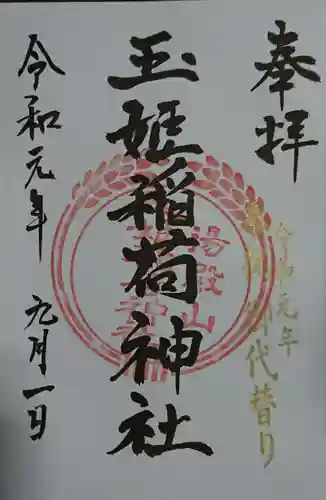 奉拝
令和元年
御代替り
玉姫稲荷神社
湯殿山
令和元年 九月一日